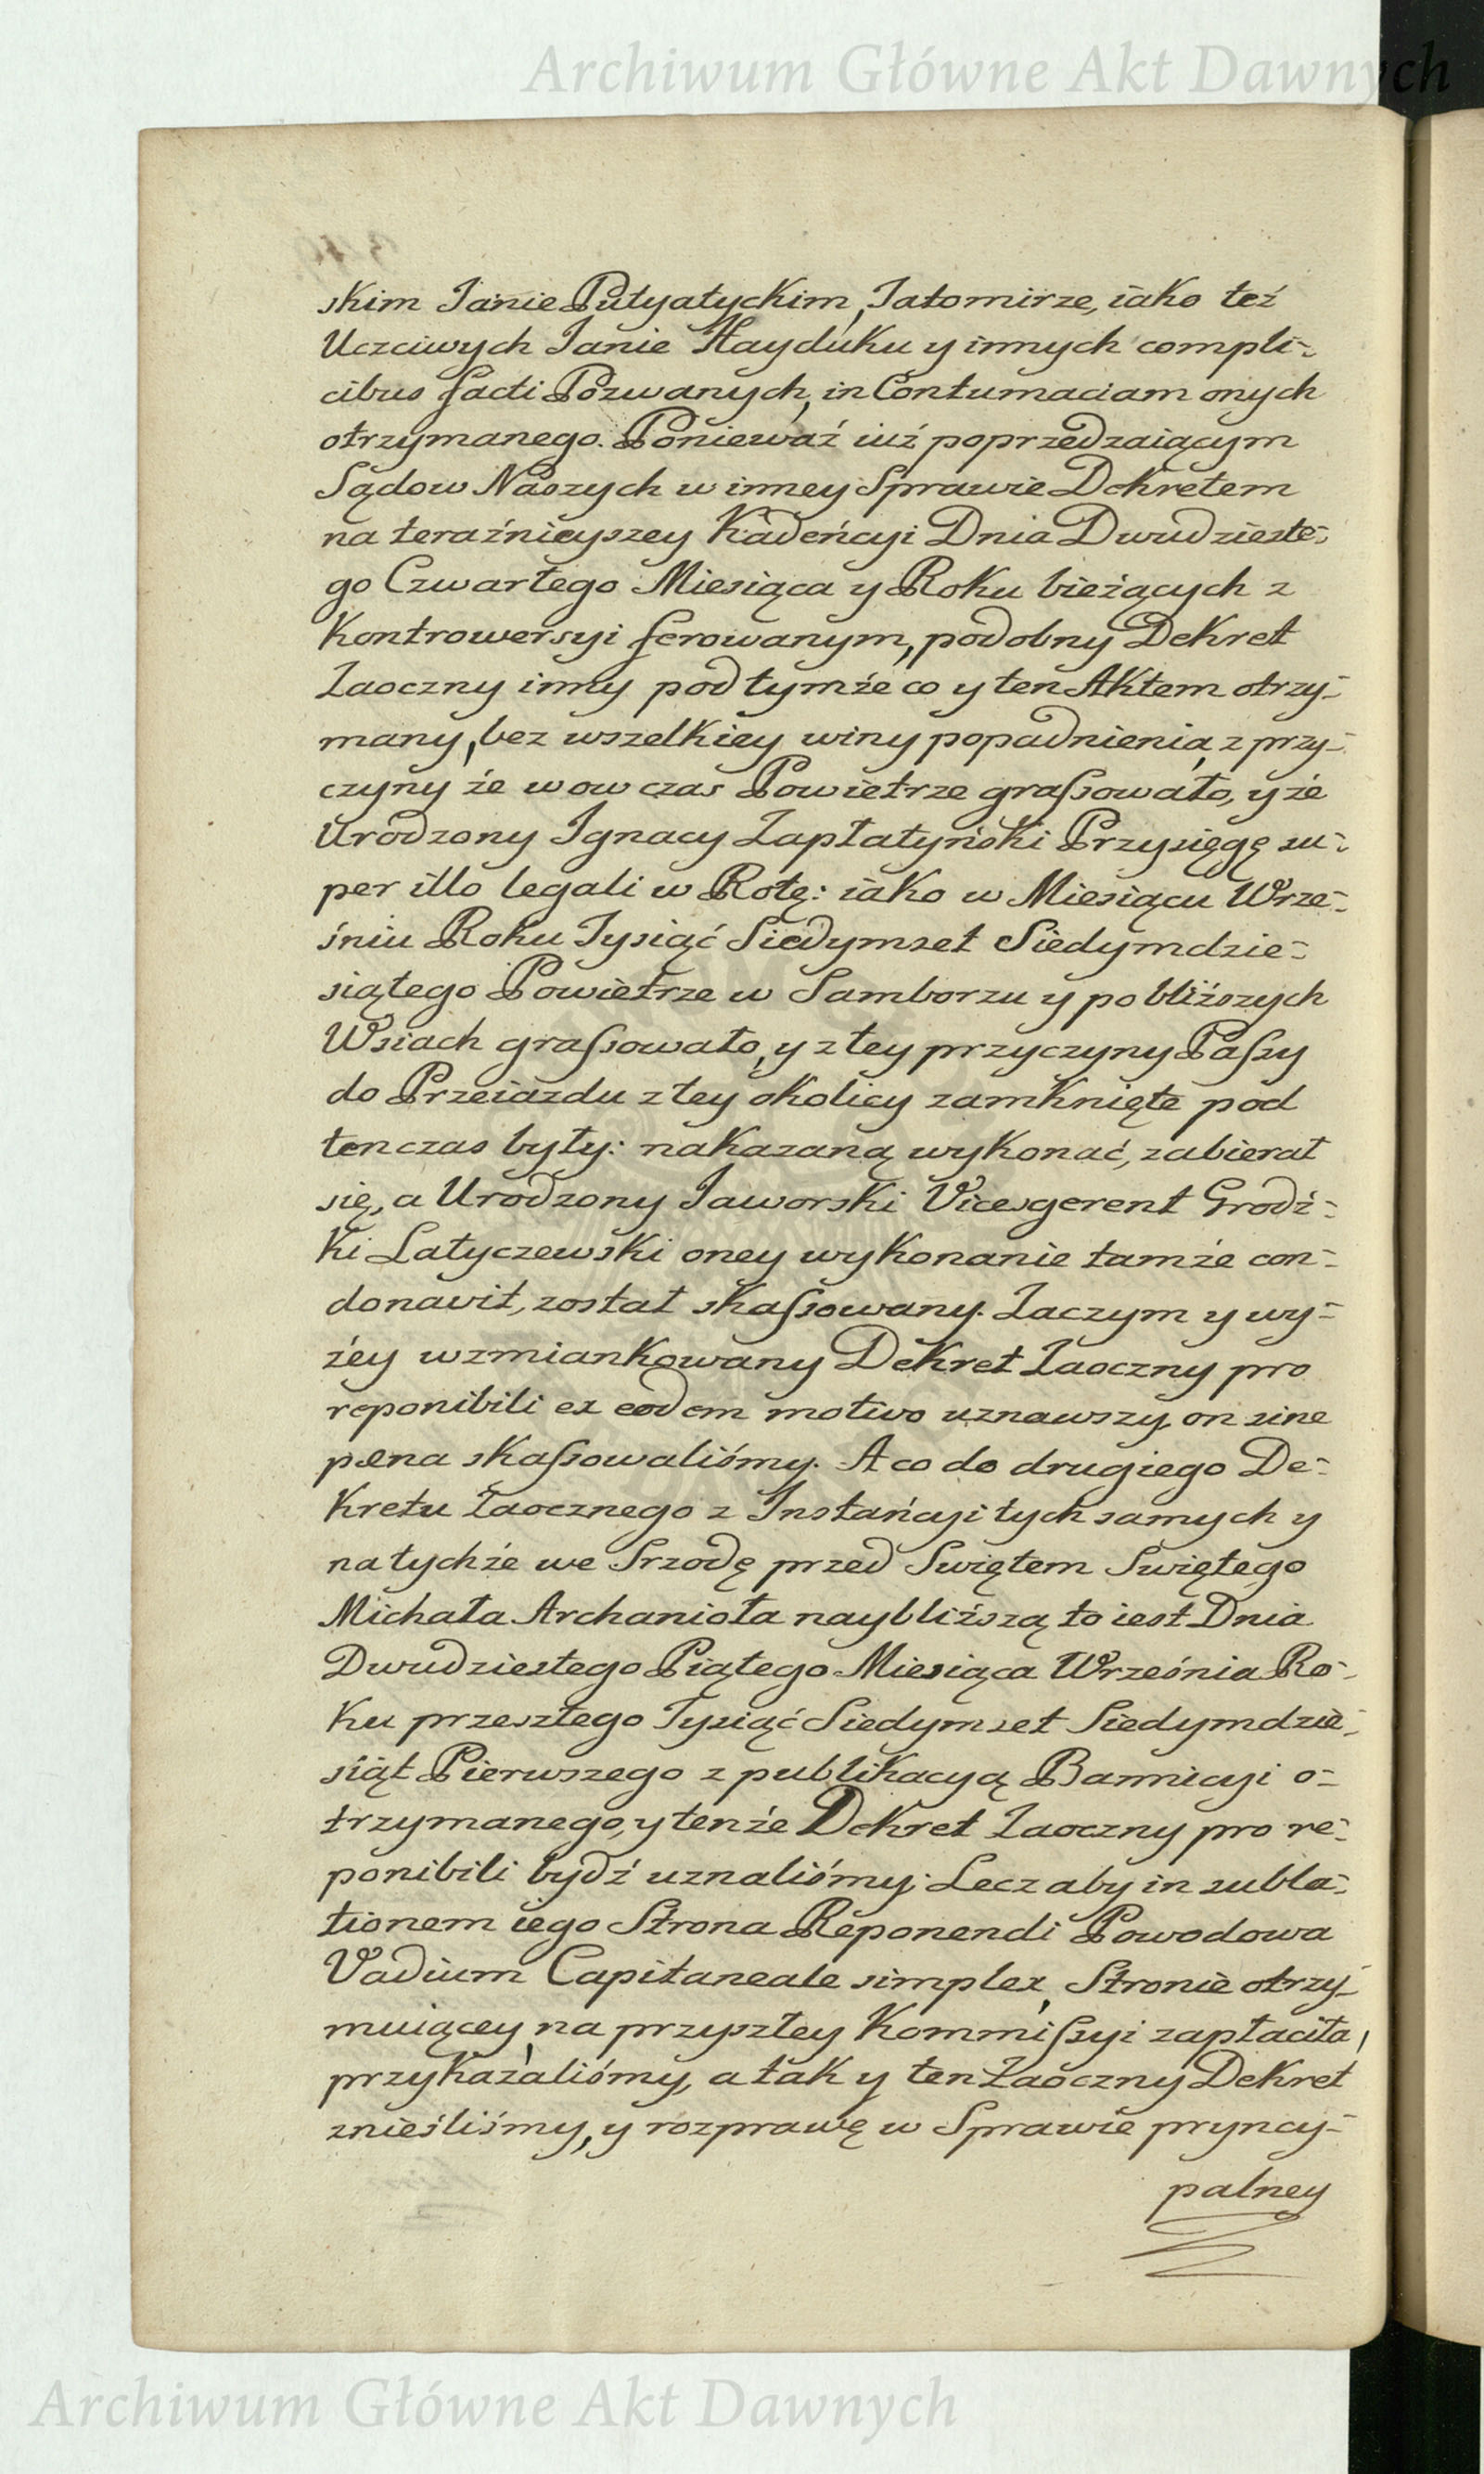 Archiwum Główne Akt Dawnych
skim Janie Putyatyckim, Jatomirze, iako też
Uczciwych Janie Hayduku y innych compli-
cibus facti Pozwanych, in Contumaciam onych
otrzymanego. Ponieważ iuż poprzedzaiącym
Sądow Naszych w inney Sprawie Dekretem
na teraźnieyszey Kadeńcyi Dnia Dwudzieste-
go Czwartego Miesiąca y Roku bieżących z
Kontrowersyi ferowanym, podobny Dekret
Zaoczny inny pod tymże co y ten Aktem otrzy-
many, bez wszelkiey winy popadnienia, z przy-
czyny że wow czas Powietrze grassowało, y że
Urodzony Ignacy Zapłatyński Przysięgę su-
per illo legali w Rotę: iako w Miesiącu Wrze-
śniu Roku Tysiąć Siedymset Siedymdzie-
siątego Powietrze w Samborzu y po bliższych
Wsiach grassowało, y z tey przyczyny Passy
do Przeiazdu z tey okolicy zamknięte pod
ten czas były: nakazaną wykonać, zabierał
się, a Urodzony Jaworski Vicesgerent Grodz-
ki Latyczewski oney wykonanie tamże con-
donavit, został skassowany. Zaczym y wy-
żey wzmiankowany Dekret Zaoczny pro
reponibili ex eodem motivo uznawszy, on sine
pœna skassowaliśmy. A co do drugiego De-
kretu Zaocznego z Instańcyi tych samych y
na tychże we Srzodę przed Swiętem Swiętego
Michała Archanioła naybliższą to iest Dnia
Dwudziestego Piątego Miesiąca Września Ro-
ku przeszłego Tysiąć Siedymset Siedymdzie-
siąt Pierwszego z publikacyą Bannicyi o-
trzymanego, y tenże Dekret Zaoczny pro re-
ponibili bydź uznaliśmy; Lecz aby in subla-
tionem iego Strona Reponendi Powodowa
Vadium Capitaneale simplex, Stronie otrzy-
muiącey, na przyszłey Kommissyi zapłaciła,
przykazaliśmy, a tak y ten Zaoczny Dekret
znieśliśmy, y rozprawę w Sprawie pryncy-
palney
Archiwum Główne Akt Dawnych